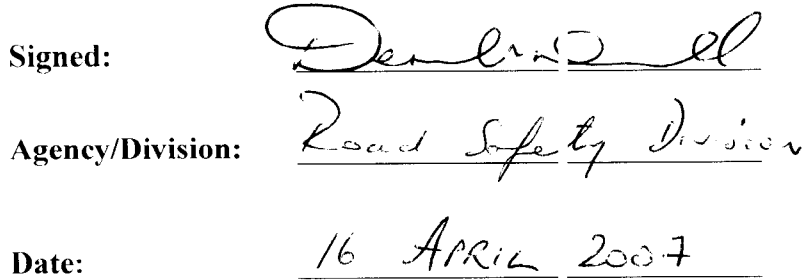 Signed:
Agency/Division: Road Safety Division
Date: 16 APRIL 2007